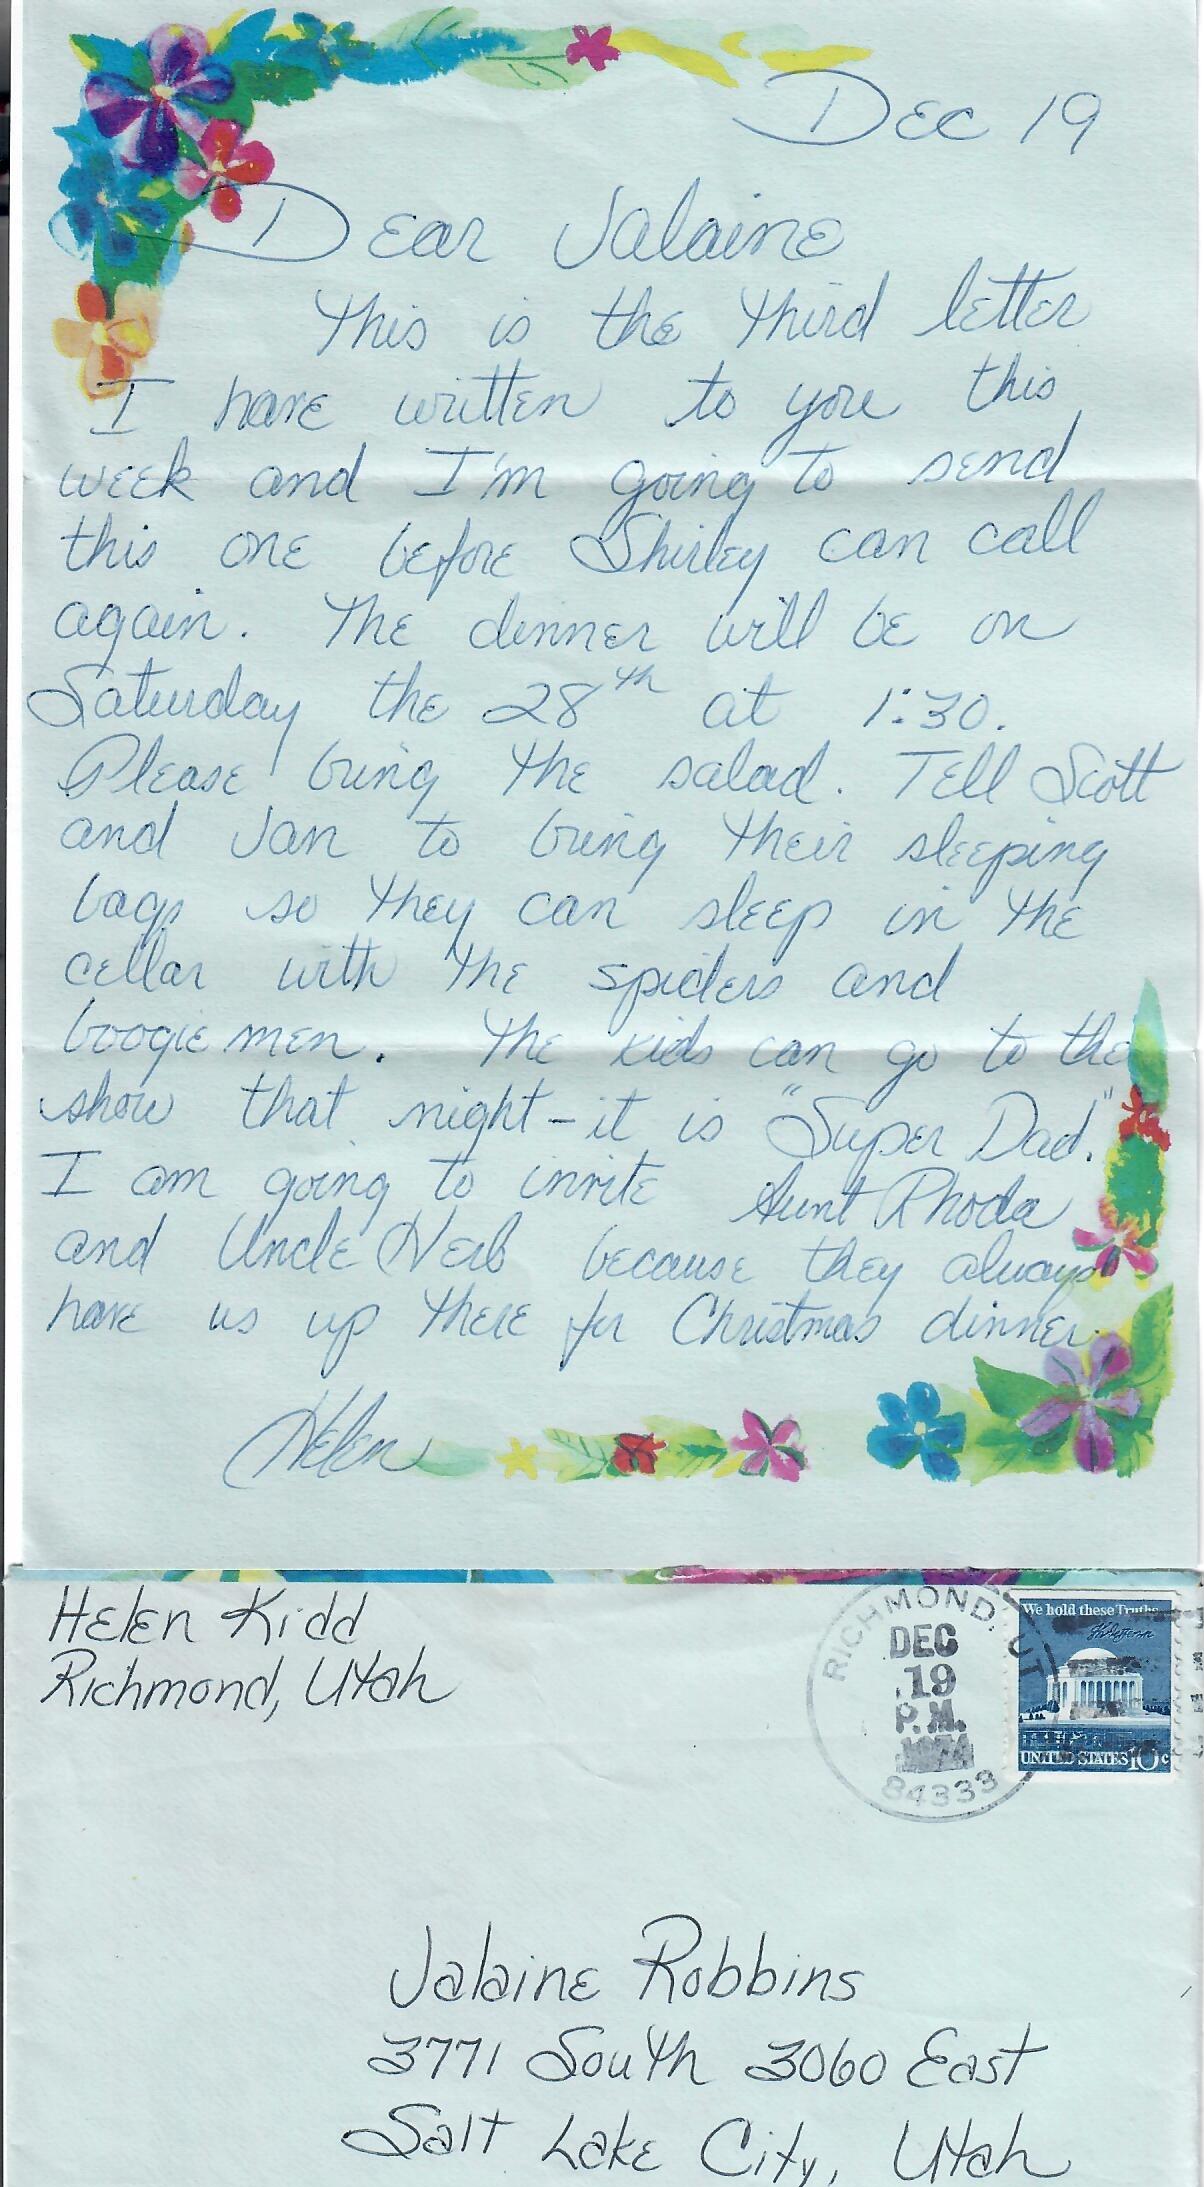 Dec 19
Dear Jalaine
This is the third letter
I have written to you this
week and I'm going to send
this one before Shirley can call
again. The dinner will be on
Saturday the 28th at 1:30.
Please bring the salad. Tell Scott
and Jan to bring their sleeping
bags so they can sleep in the
cellar with the spiders and
boogie men. The kids can go to the
show that night - it is "Super Dad."
I am going to invite Aunt Rhoda
and Uncle Herb because they always
have us up there for Christmas dinner.
Helen
Helen Kidd
Richmond, Utah
RICHMOND, UT
DEC
19
P.M.
1974
84333
We hold these Truths
UNITED STATES 10c
Jalaine Robbins
3771 South 3060 East
Salt Lake City, Utah